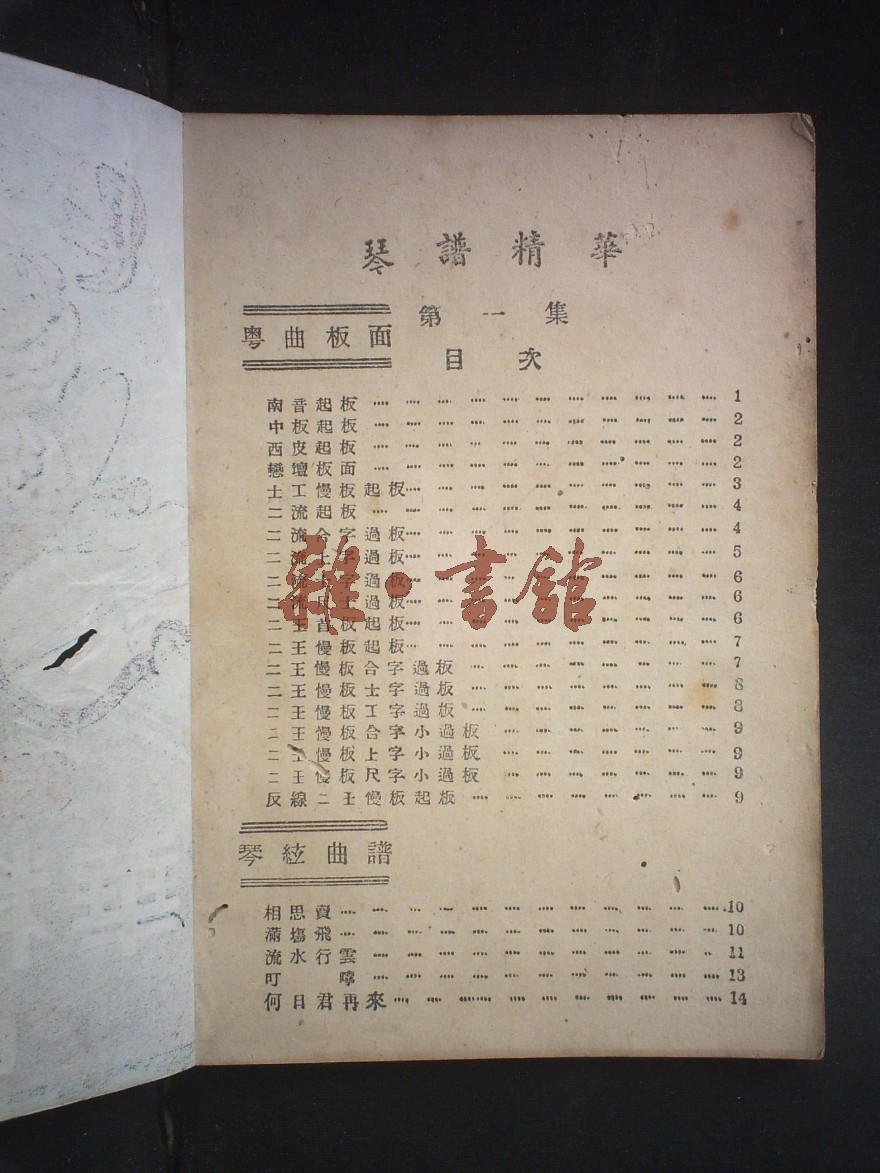 琴譜精華
第一集
粵曲板面
目次
南音起板 1
中板起板 2
西皮起板 2
戀壇板面 2
士工慢板起板 3
二流起板 4
二流合字過板 4
二流上字過板 5
二流 字過板 6
二流尺 過板 6
二王首板起板 6
二王慢板起板 7
二王慢板合字過板 7
二王慢板士字過板 8
二王慢板工字過板 8
二王慢板合字小過板 9
二王慢板上字小過板 9
二王慢板尺字小過板 9
反線二王慢板起板 9
琴絃曲譜
相思 10
滿塲飛 10
流水行雲 11
叮嚀 13
何日君再來 14
雜·書館